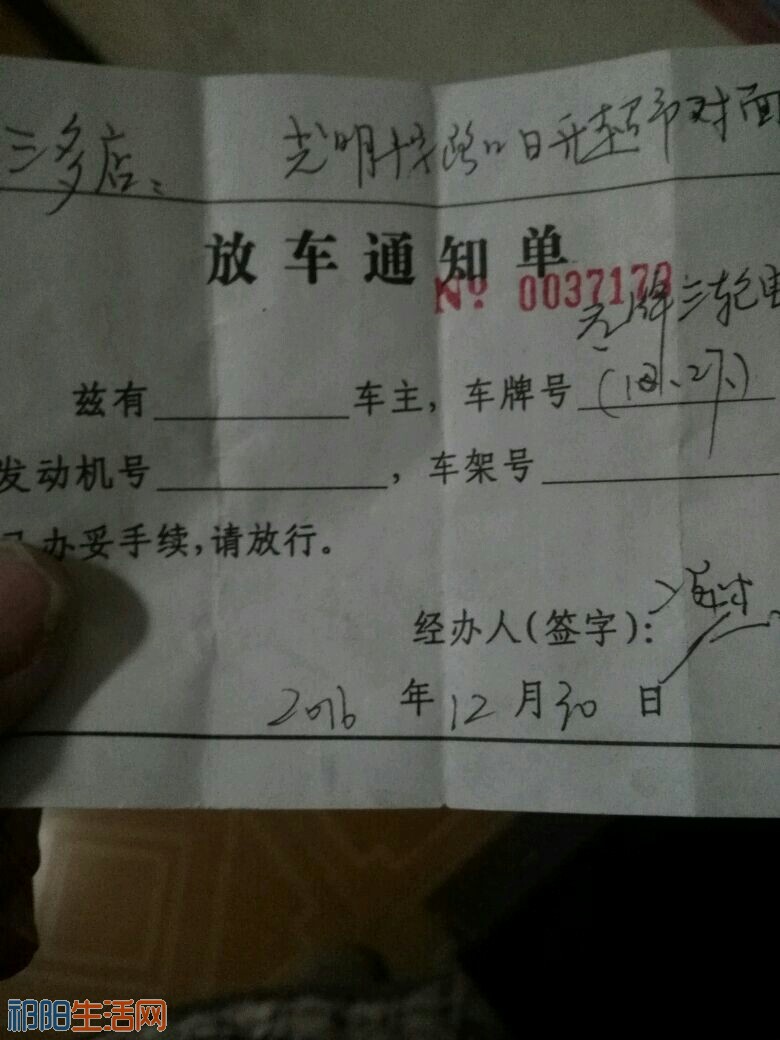 三多店: 光明十字路口日升超市对面
放车通知单
№ 0037173
无牌三轮电
兹有 车主，车牌号
发动机号 ，车架号
办妥手续，请放行。
经办人(签字):
2016 年 12 月 30 日
祁阳生活网